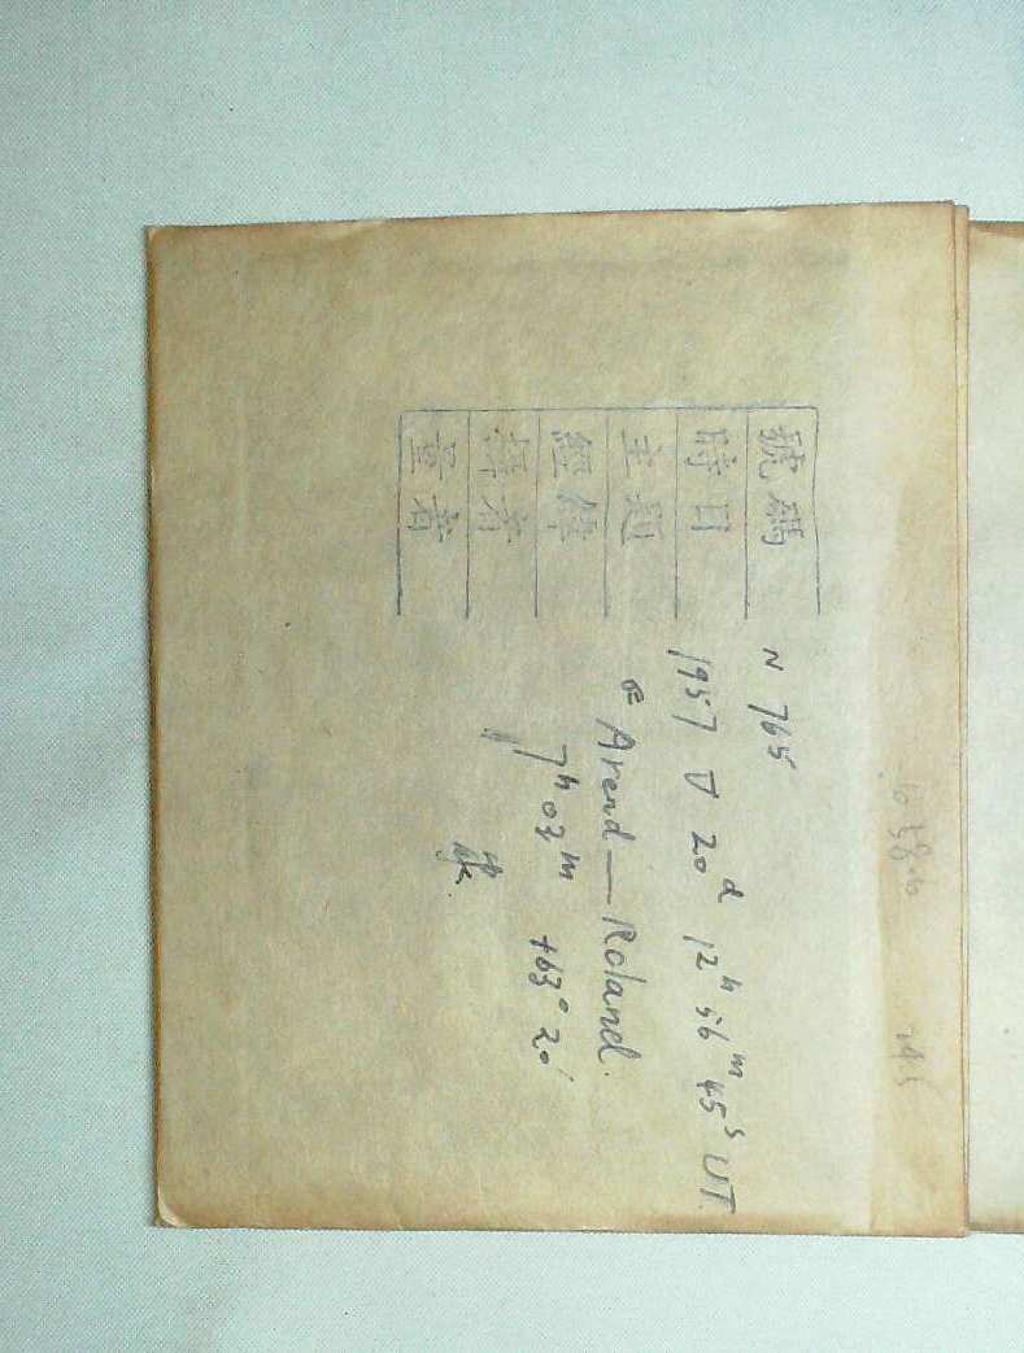 號碼 N 765
時日 1957 V 20ᵈ 12ʰ 56ᵐ 45ˢ UT
主題 Arend—Roland.
經緯 7ʰ 03ᵐ +63° 20′
攝者
量者